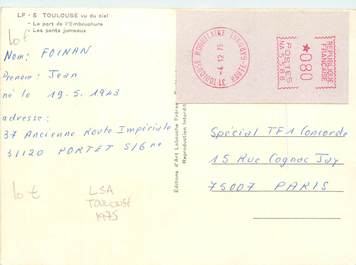 LF - 5 TOULOUSE vu du ciel
Le port de l'Embouchure
Les ponts jumeaux
lot
Nom: FOINAN
Prénom: Jean
né le 19-5-1943
adresse:
37 Ancienne Route Impériale
31120 PORTET S/G ne
lot
LSA
TOULOUSE
1975
Editions d'Art Labouche Frères
Reproduction Interdite
-4 12 75
POSTES
REPUBLIQUE
FRANCAISE
★080
Spécial TF1 Concorde
15 Rue Cognac Jay
75007 PARIS